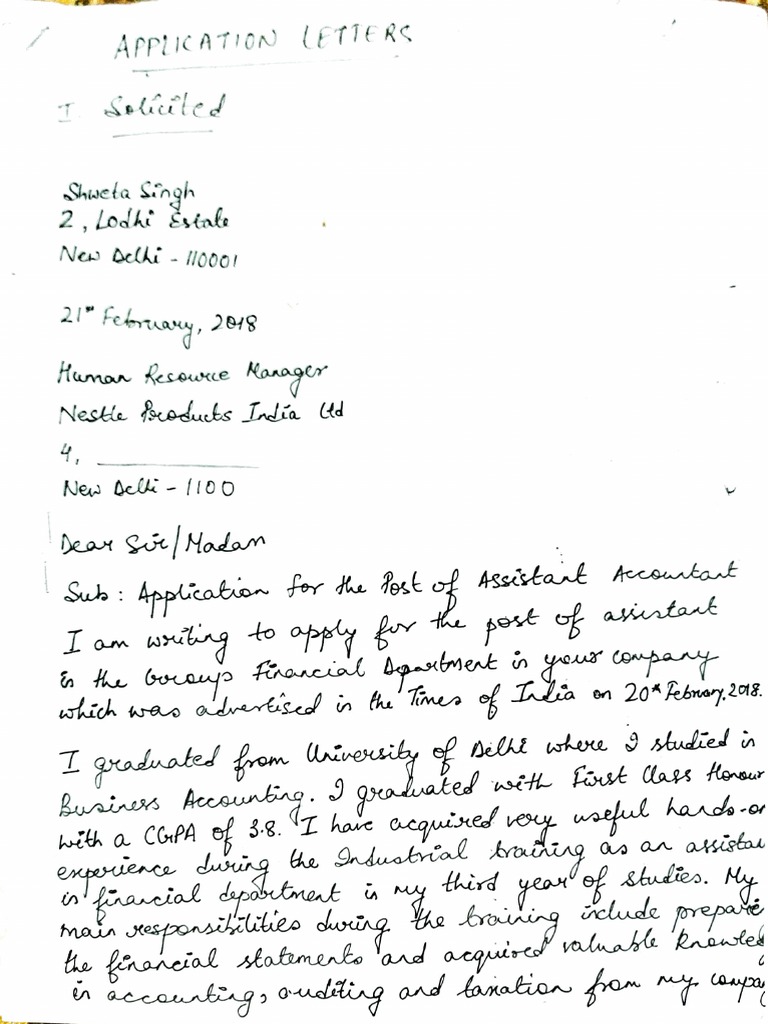 APPLICATION LETTERS
I Solicited
Shweta Singh
2, Lodhi Estate
New Delhi - 110001
21st February, 2018
Human Resource Manager
Nestle Products India Ltd
4, ____________
New Delhi - 1100
Dear Sir/Madam
Sub: Application for the Post of Assistant Accountant
I am writing to apply for the post of assistant
in the Group Financial Department in your company
which was advertised in the Times of India on 20th February, 2018.
I graduated from University of Delhi where I studied in
Business Accounting. I graduated with First Class Honour
with a CGPA of 3.8. I have acquired very useful hands-on
experience during the Industrial training as an assistan
in financial department in my third year of studies. My
main responsibilities during the training include prepare
the financial statements and acquired valuable knowled
in accounting, auditing and taxation from my compa